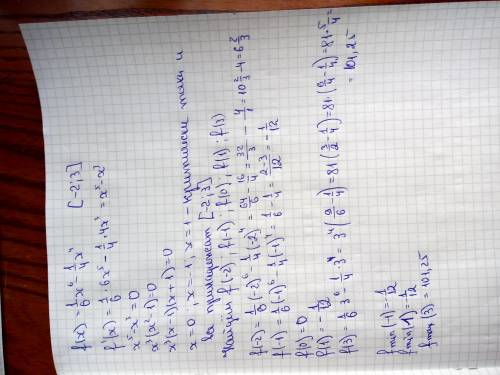 f(x) = 1/6 x⁶ - 1/4 x⁴ [-2;3]
f'(x) = 1/6 · 6x⁵ - 1/4 · 4x³ = x⁵-x³
x⁵-x³=0
x³(x²-1)=0
x³(x-1)(x+1)=0
x=0; x=-1; x=1 - критически точки и
все принадлежат [-2;3]
Найдём f(-2); f(-1); f(0); f(1); f(3)
f(-2) = 1/6 (-2)⁶ - 1/4 (-2)⁴ = 64/6 - 16/4 = 32/3 - 4/1 = 10 2/3 - 4 = 6 2/3
f(-1) = 1/6 (-1)⁶ - 1/4 (-1)⁴ = 1/6 - 1/4 = 2-3/12 = -1/12
f(0)=0
f(1) = -1/12
f(3) = 1/6 · 3⁶ - 1/4 · 3⁴ = 3⁴(9/6 - 1/4) = 81(3/2 - 1/4) = 81·5/4
= 101,25
f min (-1) = -1/12
f min (1) = -1/12
f max (3) = 101,25